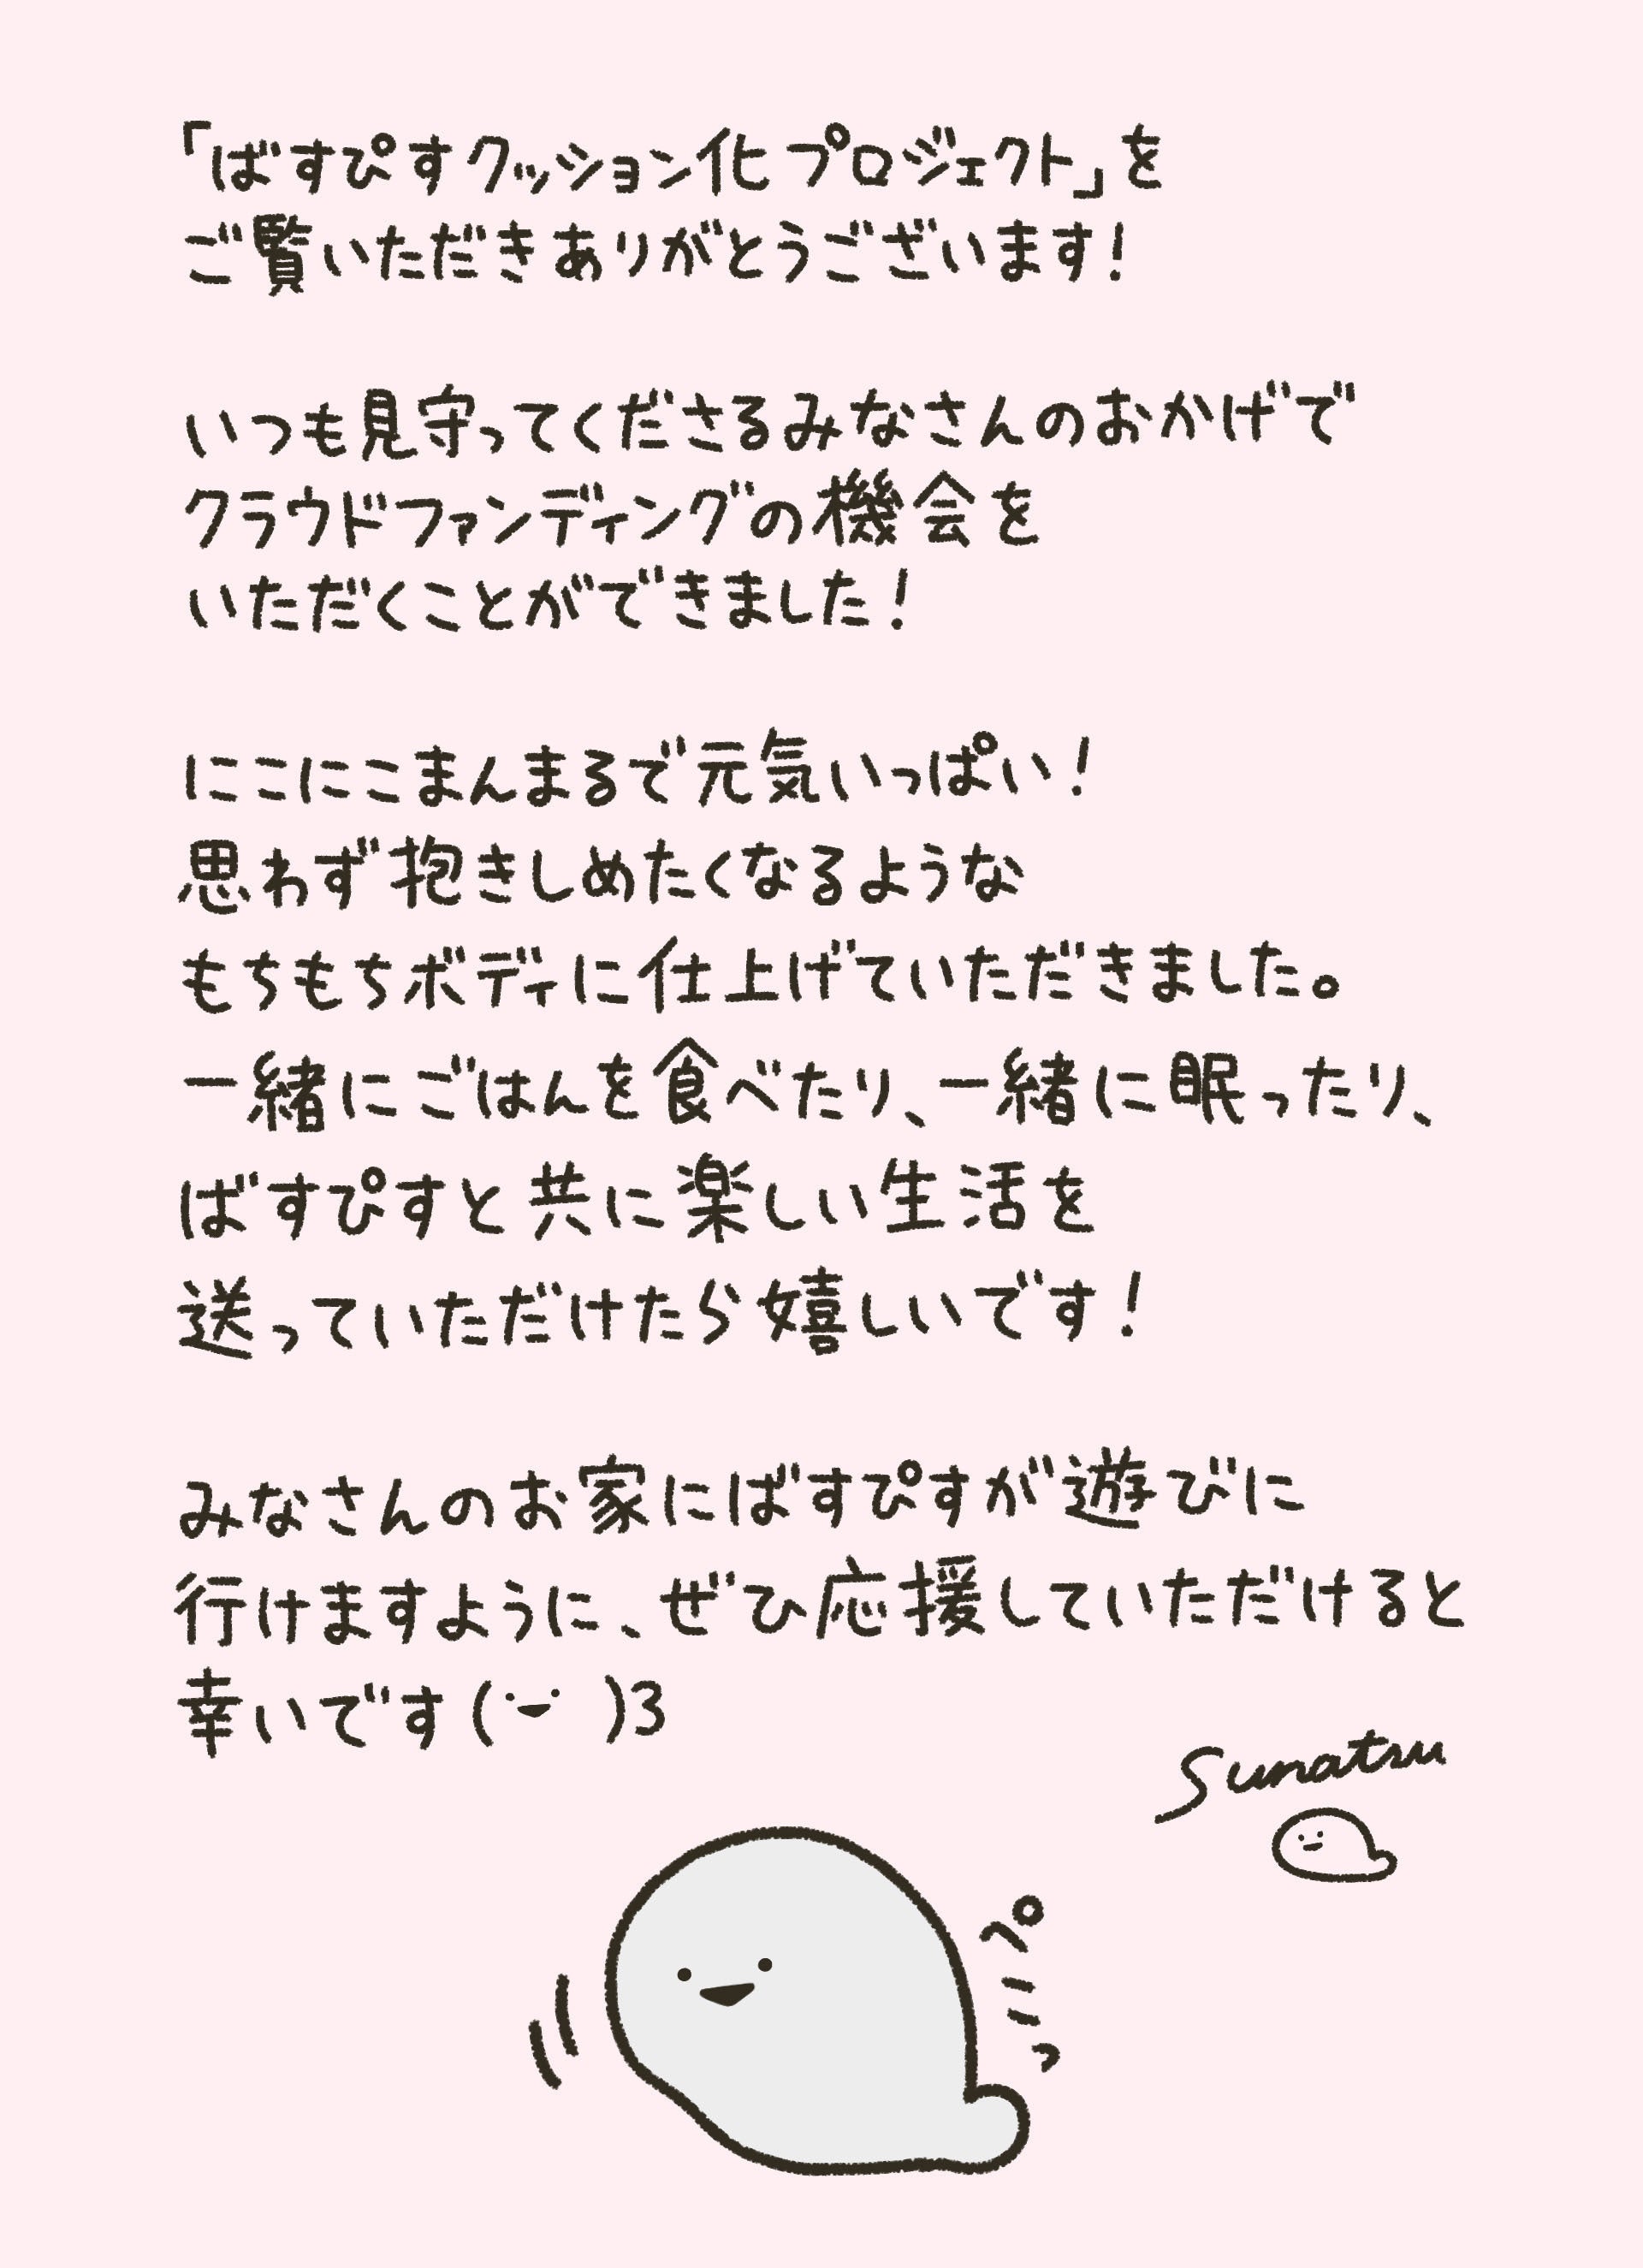 「ばすぴすクッション化プロジェクト」を
ご覧いただきありがとうございます!
いつも見守ってくださるみなさんのおかげで
クラウドファンディングの機会を
いただくことができました!
にこにこまんまるで元気いっぱい!
思わず抱きしめたくなるような
もちもちボディに仕上げていただきました。
一緒にごはんを食べたり、一緒に眠ったり、
ばすぴすと共に楽しい生活を
送っていただけたら嬉しいです!
みなさんのお家にばすぴすが遊びに
行けますように、ぜひ応援していただけると
幸いです(・◡・ )3
Sunatsu
ぺこっ